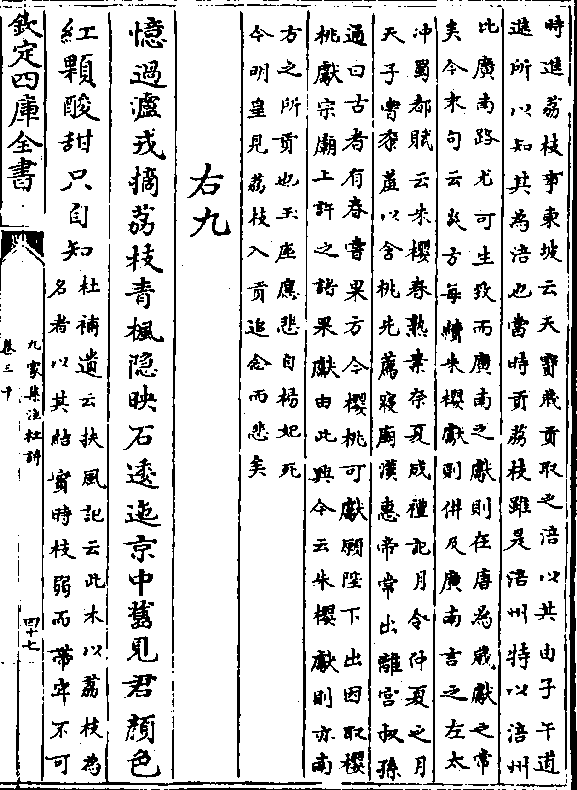 時進荔枝事東坡云天寳歲貢取之涪以其由子午道
進所以知其為涪也當時貢荔枝雖是涪州特以涪州
比廣南路尤可生致而廣南之獻則在唐為歲獻之常
矣今末句云炎方每續朱櫻獻則併及廣南言之左太
冲蜀都賦云朱櫻春熟素柰夏成禮記月令仲夏之月
天子嘗黍羞以含桃先薦寢廟漢惠帝常出離宮叔孫
通曰古者有春嘗果方今櫻桃可獻願陛下出因取櫻
桃獻宗廟上許之諸果獻由此興今云朱櫻獻則亦南
方之所貢也玉座應悲自楊妃死
今明皇見荔枝入貢追念而悲矣
右九
憶過瀘戎摘荔枝青楓隠映石逶迤京中舊見君顔色
紅顆酸甜只自知
杜補遺云扶風記云此木以荔枝為
名者以其結實時枝弱而蔕牢不可
欽定四庫全書
九家集注杜詩
卷三十
四十七